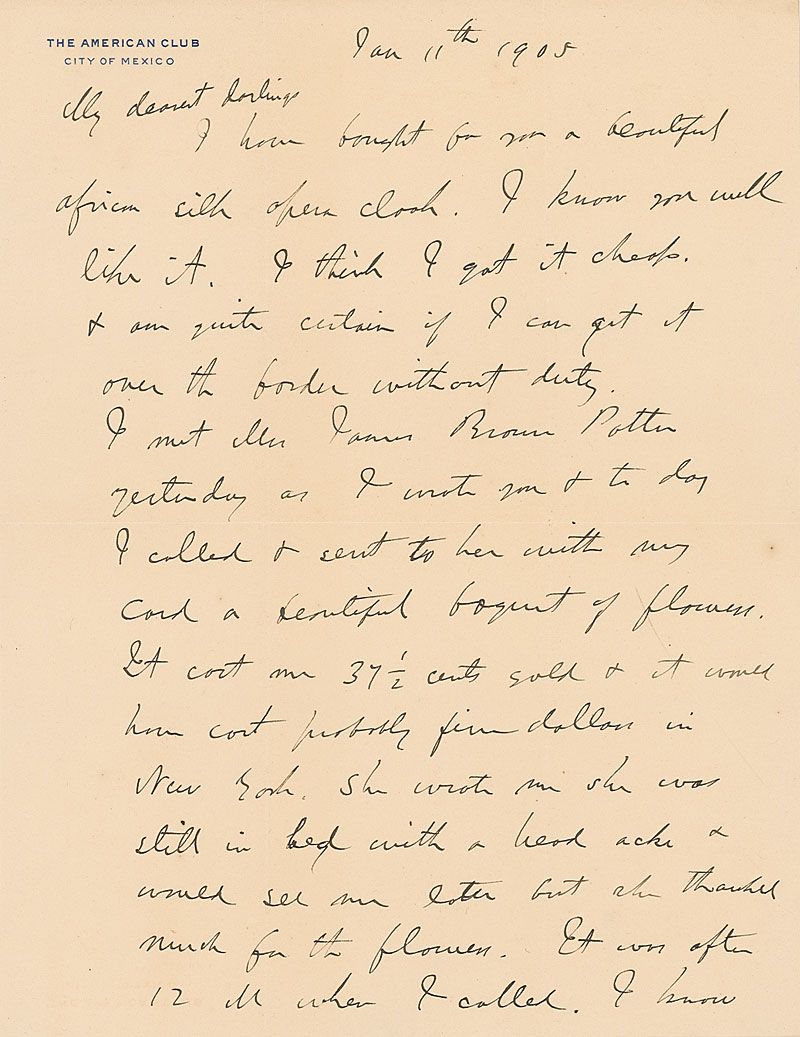 THE AMERICAN CLUB
CITY OF MEXICO
Jan 11th 1905
My dearest Darlings
I have bought for you a beautiful
african silk opera cloak. I know you will
like it. I think I got it cheap.
& am quite certain if I can get it
over the border without duty.
I met Mrs James Brown Potter
yesterday as I wrote you & to day
I called & sent to her with my
card a beautiful boquet of flowers.
It cost me 37 1/2 cents gold & it would
have cost probably five dollars in
New York. She wrote me she was
still in bed with a head ache &
would see me later but she thanked
much for the flowers. It was after
12 M when I called. I know